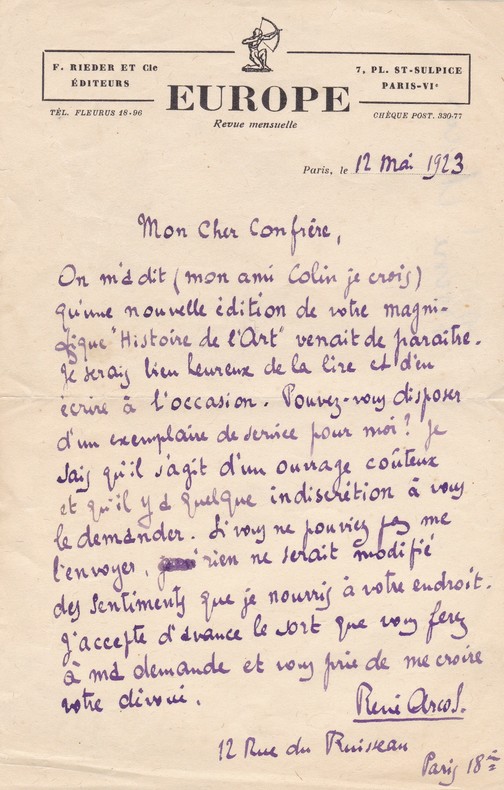 F. RIEDER ET Cie
ÉDITEURS
7, PL. ST-SULPICE
PARIS-VIe
EUROPE
TÉL. FLEURUS 18-96
CHÈQUE POST. 330-77
Revue mensuelle
Paris, le 12 mai 1923
Mon Cher Confrère,
On m'a dit (mon ami Colin je crois)
qu'une nouvelle édition de votre magni-
fique "Histoire de l'Art" venait de paraître.
Je serais bien heureux de la lire et d'en
écrire à l'occasion. Pouvez-vous disposer
d'un exemplaire de service pour moi? Je
sais qu'il s'agit d'un ouvrage coûteux
et qu'il y a quelque indiscrétion à vous
le demander. Si vous ne pouviez pas me
l'envoyer, rien ne serait modifié
des sentiments que je nourris à votre endroit.
J'accepte d'avance le sort que vous ferez
à ma demande et vous prie de me croire
votre dévoué.
René Arcos.
12 Rue du Ruisseau
Paris 18e